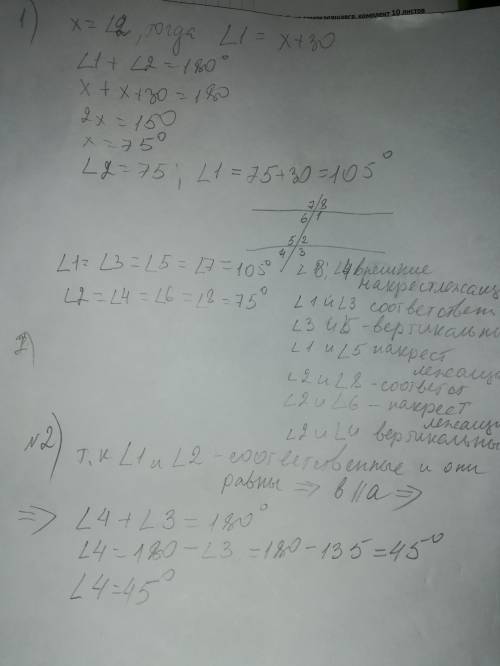 комплект 10 листов
1) x = ∠2, тогда ∠1 = x+30
∠1 + ∠2 = 180°
x + x+30 = 180
2x = 150
x = 75°
∠2 = 75; ∠1 = 75+30 = 105°
7 8
6 1
5 2
4 3
∠1 = ∠3 = ∠5 = ∠7 = 105°
∠2 = ∠4 = ∠6 = ∠8 = 75°
∠8; ∠4 внешние
накрестлежащ
∠1 и ∠3 соответствет
∠3 и 5 - вертикальн
∠1 и ∠5 накрест
лежащи
∠2 и ∠8 - соответст
∠2 и ∠6 - накрест
лежащи
∠2 и ∠4 вертикальны
№2) т.к ∠1 и ∠2 - соответственные и они
равны ⇒ в || а ⇒
⇒ ∠4 + ∠3 = 180°
∠4 = 180 - ∠3 = 180 - 135 = 45°
∠4 = 45°